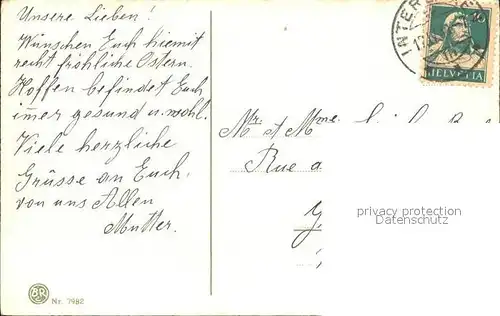 Unsere Lieben!
Wünschen Euch hiemit
recht fröhliche Ostern.
Hoffen befindet Euch
im̄er gesund u. wohl.
Viele herzliche
Grüsse an Euch,
von uns Allen
Mutter.
Nr. 7982
INTER
10
HELVETIA
Mr. et Mme.
Rue
privacy protection
oldthing.de